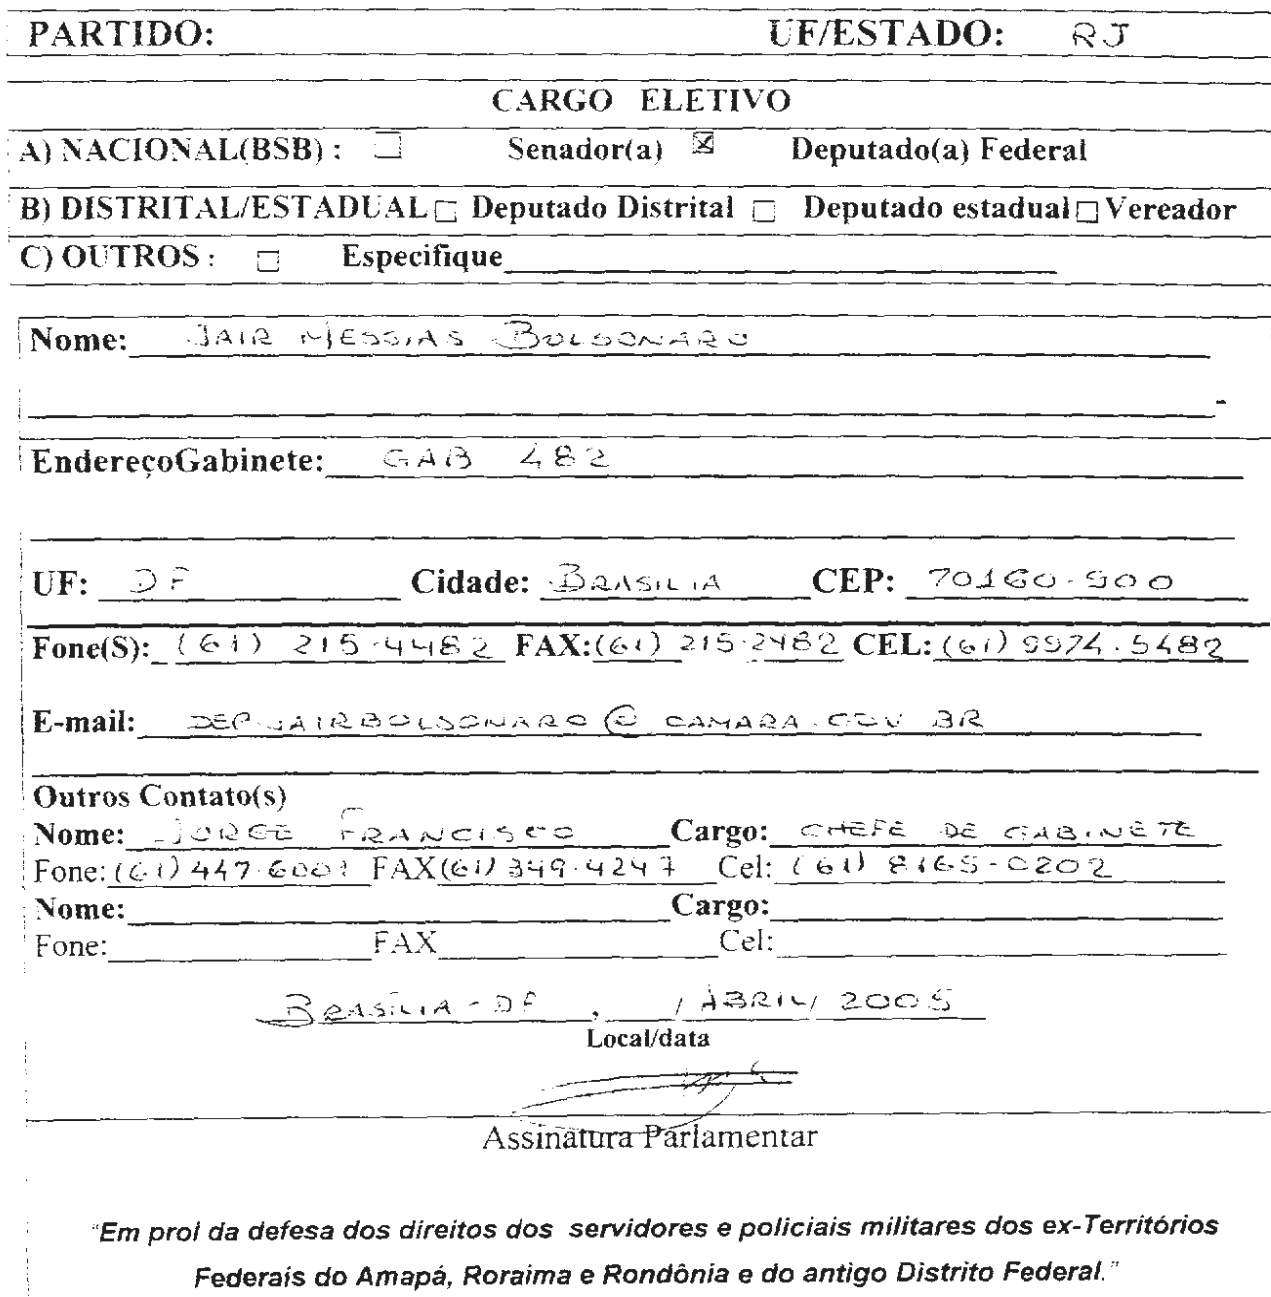 PARTIDO: UF/ESTADO: RJ
CARGO ELETIVO
A) NACIONAL(BSB) : ☐ Senador(a) ☒ Deputado(a) Federal
B) DISTRITAL/ESTADUAL ☐ Deputado Distrital ☐ Deputado estadual ☐ Vereador
C) OUTROS : ☐ Especifique
Nome: JAIR MESSIAS BOLSONARO
EndereçoGabinete: GAB 482
UF: DF Cidade: BRASILIA CEP: 70160-900
Fone(S): (61) 215-4482 FAX:(61) 215-2482 CEL: (61) 9974.5482
E-mail: DEP.JAIRBOLSONARO@CAMARA.GOV.BR
Outros Contato(s)
Nome: JORGE FRANCISCO Cargo: CHEFE DE GABINETE
Fone: (61) FAX(61) 349.4247 Cel: (61) 8165-0202
Nome: Cargo:
Fone: FAX Cel:
BRASÍLIA-DF , / ABRIL/ 2005
Local/data
Assinatura Parlamentar
"Em prol da defesa dos direitos dos servidores e policiais militares dos ex-Territórios
Federais do Amapá, Roraima e Rondônia e do antigo Distrito Federal."